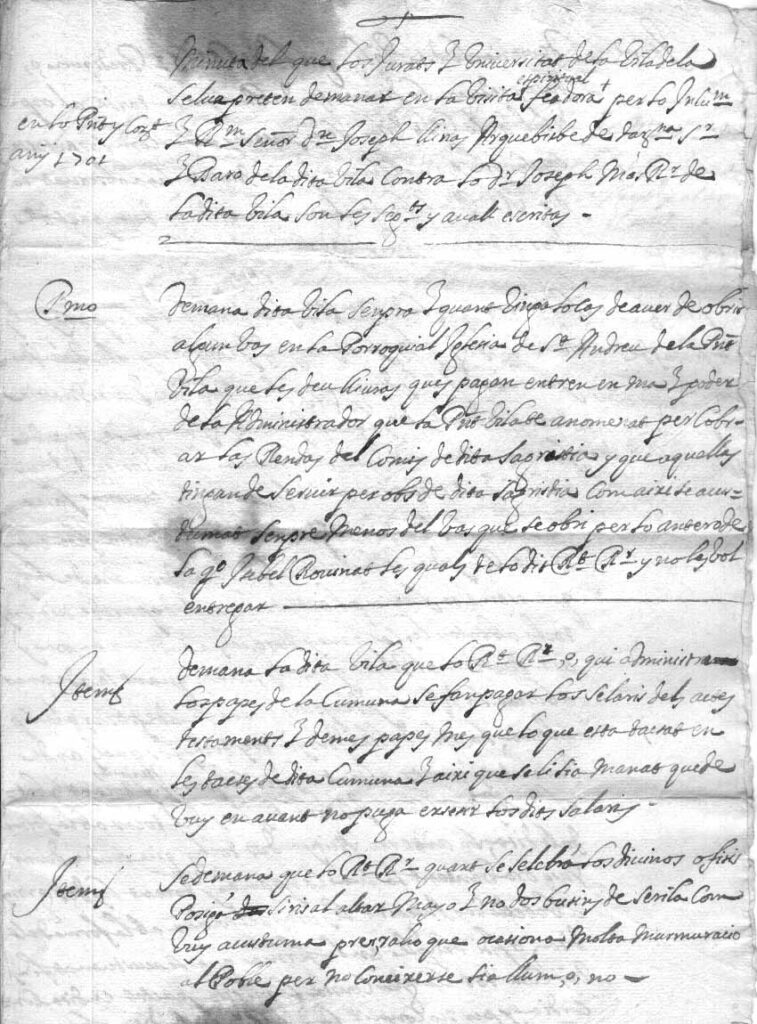 Minuta del que los Jurats y Universitat de la Vila de la
Selva preten demanar en la Visita espiritual feadora per lo Inlum
y Rm Señor dn Joseph llinas Arquebisbe de Tarna Sr
y Baro de la dita Vila Contra lo dr Joseph Mas Rr de
la dita Vila son les segts y avall escritas -
en lo Pnt y Corrt
any 1701
Pmo
demana dita Vila senpra y quant tinga lo cas de aver de obrir
algun Vas en la Parroquial Iglesia de St Andreu de la Pnt
Vila que les deu lliuras ques pagan entren en ma y poder
de la Administrador que la Pnt Vila te anomenat per Cobr-
ar las Rendas del Comu de dita Sagristia y que aquellas
tingan de servir per obs de dita Sagristia Com aixi se acus-
tumat senpre Menos del Vas que se obri per lo anterro de
la qo Isabel Rovinat les quals te lo dit Rt Rr y no les vol
entregar
Item
demana la dita Vila que lo Rt Rr, o, qui administra
los papes de la Cumuna se fan pagar los selaris dels actes
testaments y demes papes mes que lo que esta taxat en
les taxes de dita Cumuna y aixi que se li sia manat que de
vuy en avant no puga exsegir los dits salaris -
Item
Se demana que lo Rt Rr quant se selebra los divinos ofisis
Posiga siris al altar Mayo y no dos butins de serila Com
vuy acustuma pres, alio que ocasiona Molta Murmuracio
al Poble per no Coneixerse si a llum, o, no -